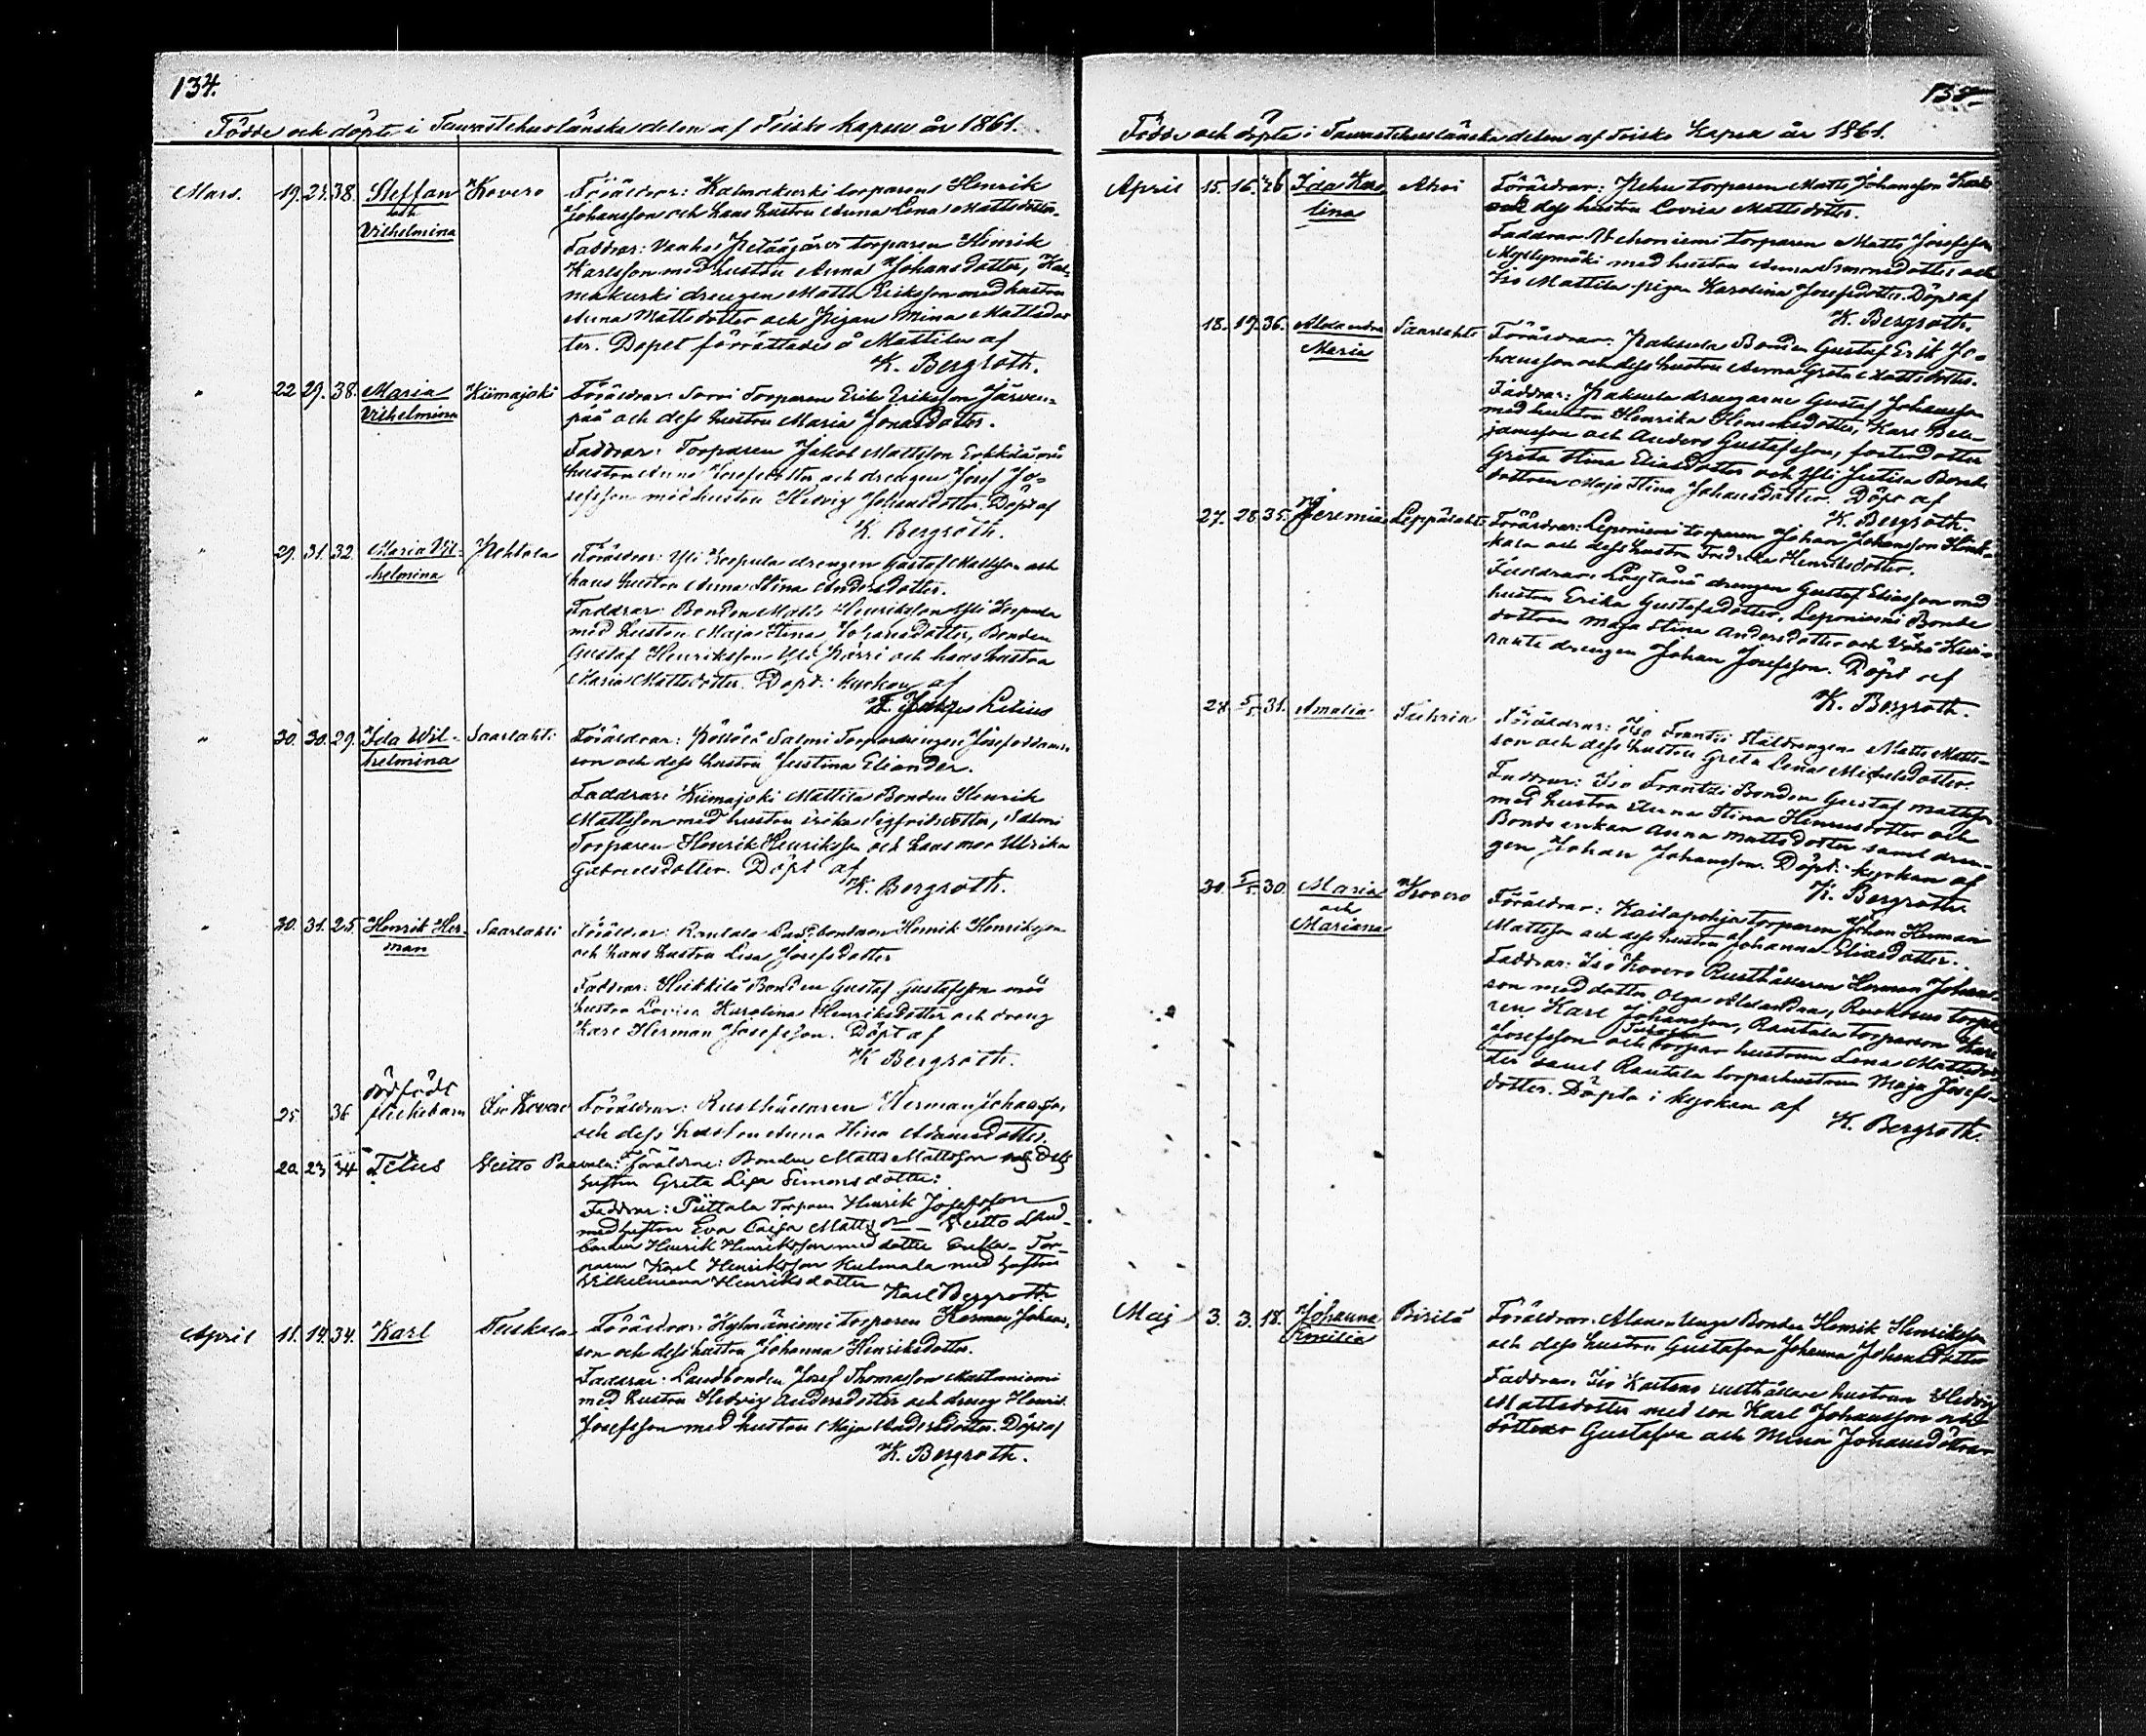 134.
Födde och döpte i Tavastehuslänska delen af Teisko kapell år 1861.
Mars. 19. 24. 38. Steffan Kovero Föräldrar: Kalmakurki torparen Henrik
och Johansson och hans hustru Anna Lena Mattsdotter.
Vilhelmina
Faddrar: Vanha Petäjäjärvi torparen Henrik
Karlsson med hustru Anna Johansdotter, Kal-
makurki drengen Matts Eriksson med hustru
Anna Mattsdotter och Pigan Mina Mattsdot
ter. Dopet förrättades å Mattila af
K. Bergroth.
" 22 29. 38. Maria Kiimajoki Föräldrar: Sorri Torparen Erik Eriksson Järven-
Vilhelmina pää och dess hustru Maria Jonasdotter.
Faddrar: Torparen Jakob Mattsson Erkkilä med
hustru Anna Josefsdotter och drengen Josef Jo-
sefsson med hustru Hedvig Johansdotter. Döpt af
K. Bergroth.
" 29. 31. 32. Maria Vil- Pohtola Föräldrar: Yli Kospula drengen Gustaf Mattsson och
helmina hans hustru Anna Stina Andersdotter.
Faddrar: Bonden Matts Henriksson Yli Kospula
med hustru Maja Stina Johansdotter, Bonden
Gustaf Henriksson Yli Pärri och hans hustru
Maria Mattsdotter. Döpt i kyrkan af
Lilius
" 30. 30. 29. Ida Wil- Saarlahti Föräldrar: Pöllölä Salmi Torpardrengen Josef Adams-
helmina son och dess hustru Justina Eliander.
Faddrar: Kiimajoki Mattila Bonden Henrik
Mattsson med hustru Erika Sigfridsdotter, Salmi
Torparen Henrik Henriksson och hans mor Ulrika
Gabrielsdotter. Döpt af
K. Bergroth.
" 30. 31. 25. Henrik Her- Saarlahti Föräldrar: Rautala Landbonden Henrik Henriksson
man och hans hustru Lisa Josefsdotter
Faddrar: Heikkilä Bonden Gustaf Gustafsson med
hustru Lovisa Karolina Henriksdotter och dreng
Karl Herman Josefsson. Döpt af
K. Bergroth.
dödfödt
25. 36 flickebarn Iso Kovero Föräldrar: Rusthållaren Herman Johansson
och dess hustru Anna Stina Adamsdotter.
20 23 34 Titus Veitto Paavola: Föräldrar: Bonden Matts Mattsson och dess
hustru Greta Lisa Simonsdotter:
Faddrar: Piittala Torparen Henrik Josefsson
med hustru Eva Caisa Mattsdr — Veitto Land-
bonden Henrik Henriksson med dotter Greta - Tor-
paren Karl Henriksson Kulmala med hustru
Vilhelmina Henriksdotter
Karl Bergroth.
April 11. 14. 34. Karl Terskala Föräldrar: Hylmäniemi torparen Herman Johans-
son och dess hustru Johanna Henriksdotter.
Faddrar: Landbonden Josef Thomasson Mustaniemi
med hustru Hedvig Andersdotter och dreng Henrik
Josefsson med hustru Maja Andersdotter. Döpt af
K. Bergroth.
135
Födde och döpte i Tavastehuslänska delen af Teisko Kapell år 1861.
April 15. 16. 26 Ida Karo Ahoi Föräldrar: Pehu torparen Matts Johansson
lina och dess hustru Lovisa Mattsdotter.
Faddrar: torparen Matts Josefsson
Myllymäki med hustru Anna Simonsdotter och
Iso Mattila pigan Karolina Josefsdotter. Döpt af
K. Bergroth.
18. 19. 36. Alexandra Saarlahti Föräldrar: Pakkala Bonden Gustaf Erik Jo-
Maria hansson och dess hustru Anna Greta Mattsdotter.
Faddrar: Pakkala drengarne Gustaf Johansson
med hustru Henrika Henriksdotter, Karl Ben-
jamsson och Anders Gustafsson, fosterdotter
Greta Stina Eliasdotter och Yli Jutila Bonde
dottren Maja Stina Johansdotter. Döpt af
K. Bergroth.
27. 28. 35. Jeremias Leppälahti Föräldrar: Leponiemi torparen Johan Johansson Honk-
kala och dess hustru Fredrika Henriksdotter.
Faddrar: Löytänä drengen Gustaf Eliasson med
hustru Erika Gustafsdotter, Leponiemi Bonde
dottren Maja Stina Andersdotter och Vähä Kuri-
ranta drengen Johan Josefsson. Döpt af
K. Bergroth.
24. 5/5. 31. Amalia Terkria Föräldrar: Iso Frantsi Stäldrengen Matts Matts-
son och dess hustru Greta Lena Michelsdotter.
Faddrar: Iso Frantsi Bonden Gustaf Mattsson
med hustru Anna Stina Henriksdotter och
Bonde enkan Anna Mattsdotter samt dren-
gen Johan Johansson. Döpt i kyrkan af
K. Bergroth.
30. 5/5. 30. Maria Kovero Föräldrar: Kaitapohja torparen Johan Herman
och Mattsson och dess hustru Johanna Eliasdotter.
Mariana
Faddrar: Iso Kovero Rusthållaren Herman Johans-
son med dotter Olga Alexandra, torpa
ren Karl Johansson, Rautala torparen Karl
Josefsson och torpar hustrun Lena Mattsdot
ter samt Rautala torparhustrun Maja Josefs-
dotter. Döpta i kyrkan af
K. Bergroth.
Maj 3. 3. 18. Johanna Pirilä Föräldrar: Bonden Henrik Henriksson
Emilia och dess hustru Gustafva Johanna Johansdotter
Faddrar: Iso Kartano rusthållare hustrun Hedvig
Mattsdotter med son Karl Johansson och
döttrar Gustafva och Mina Johansdöttrar